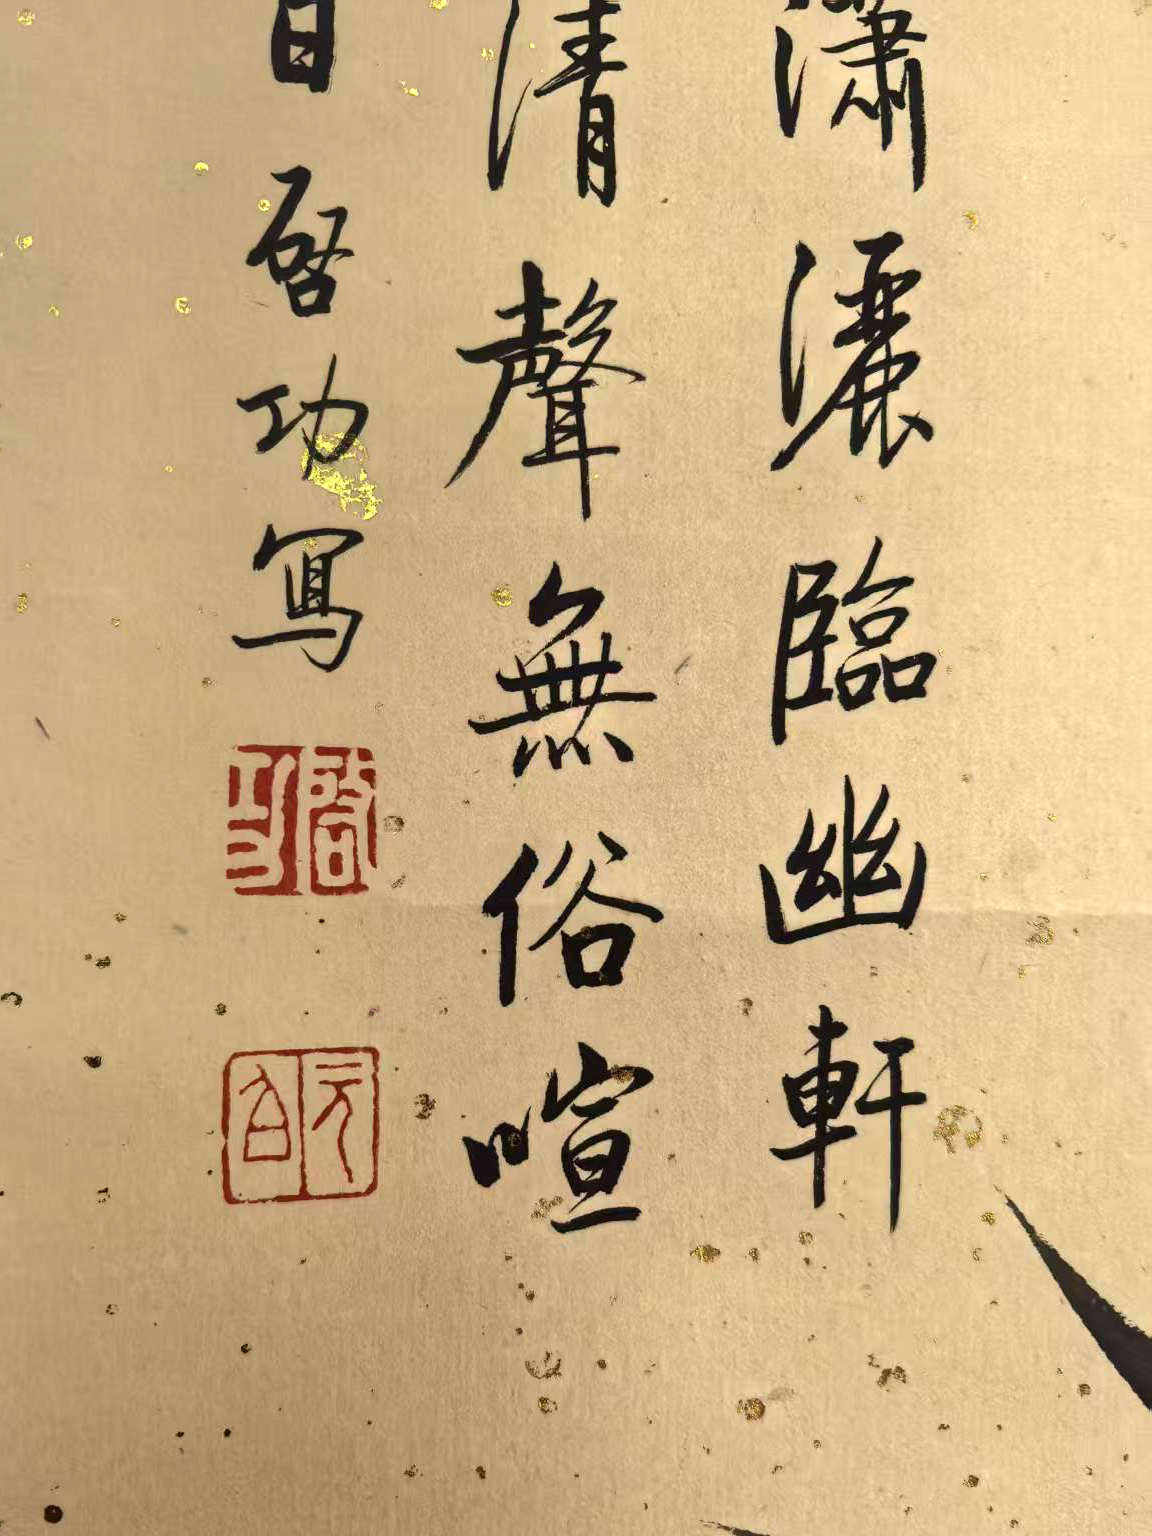 瀟灑臨幽軒
清聲無俗喧
日啓功寫
啓功
元白